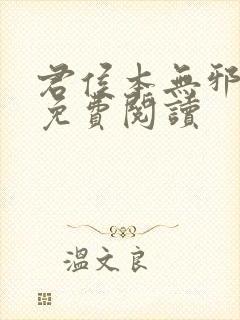 君侯本無邪
免費閱讀
溫文良